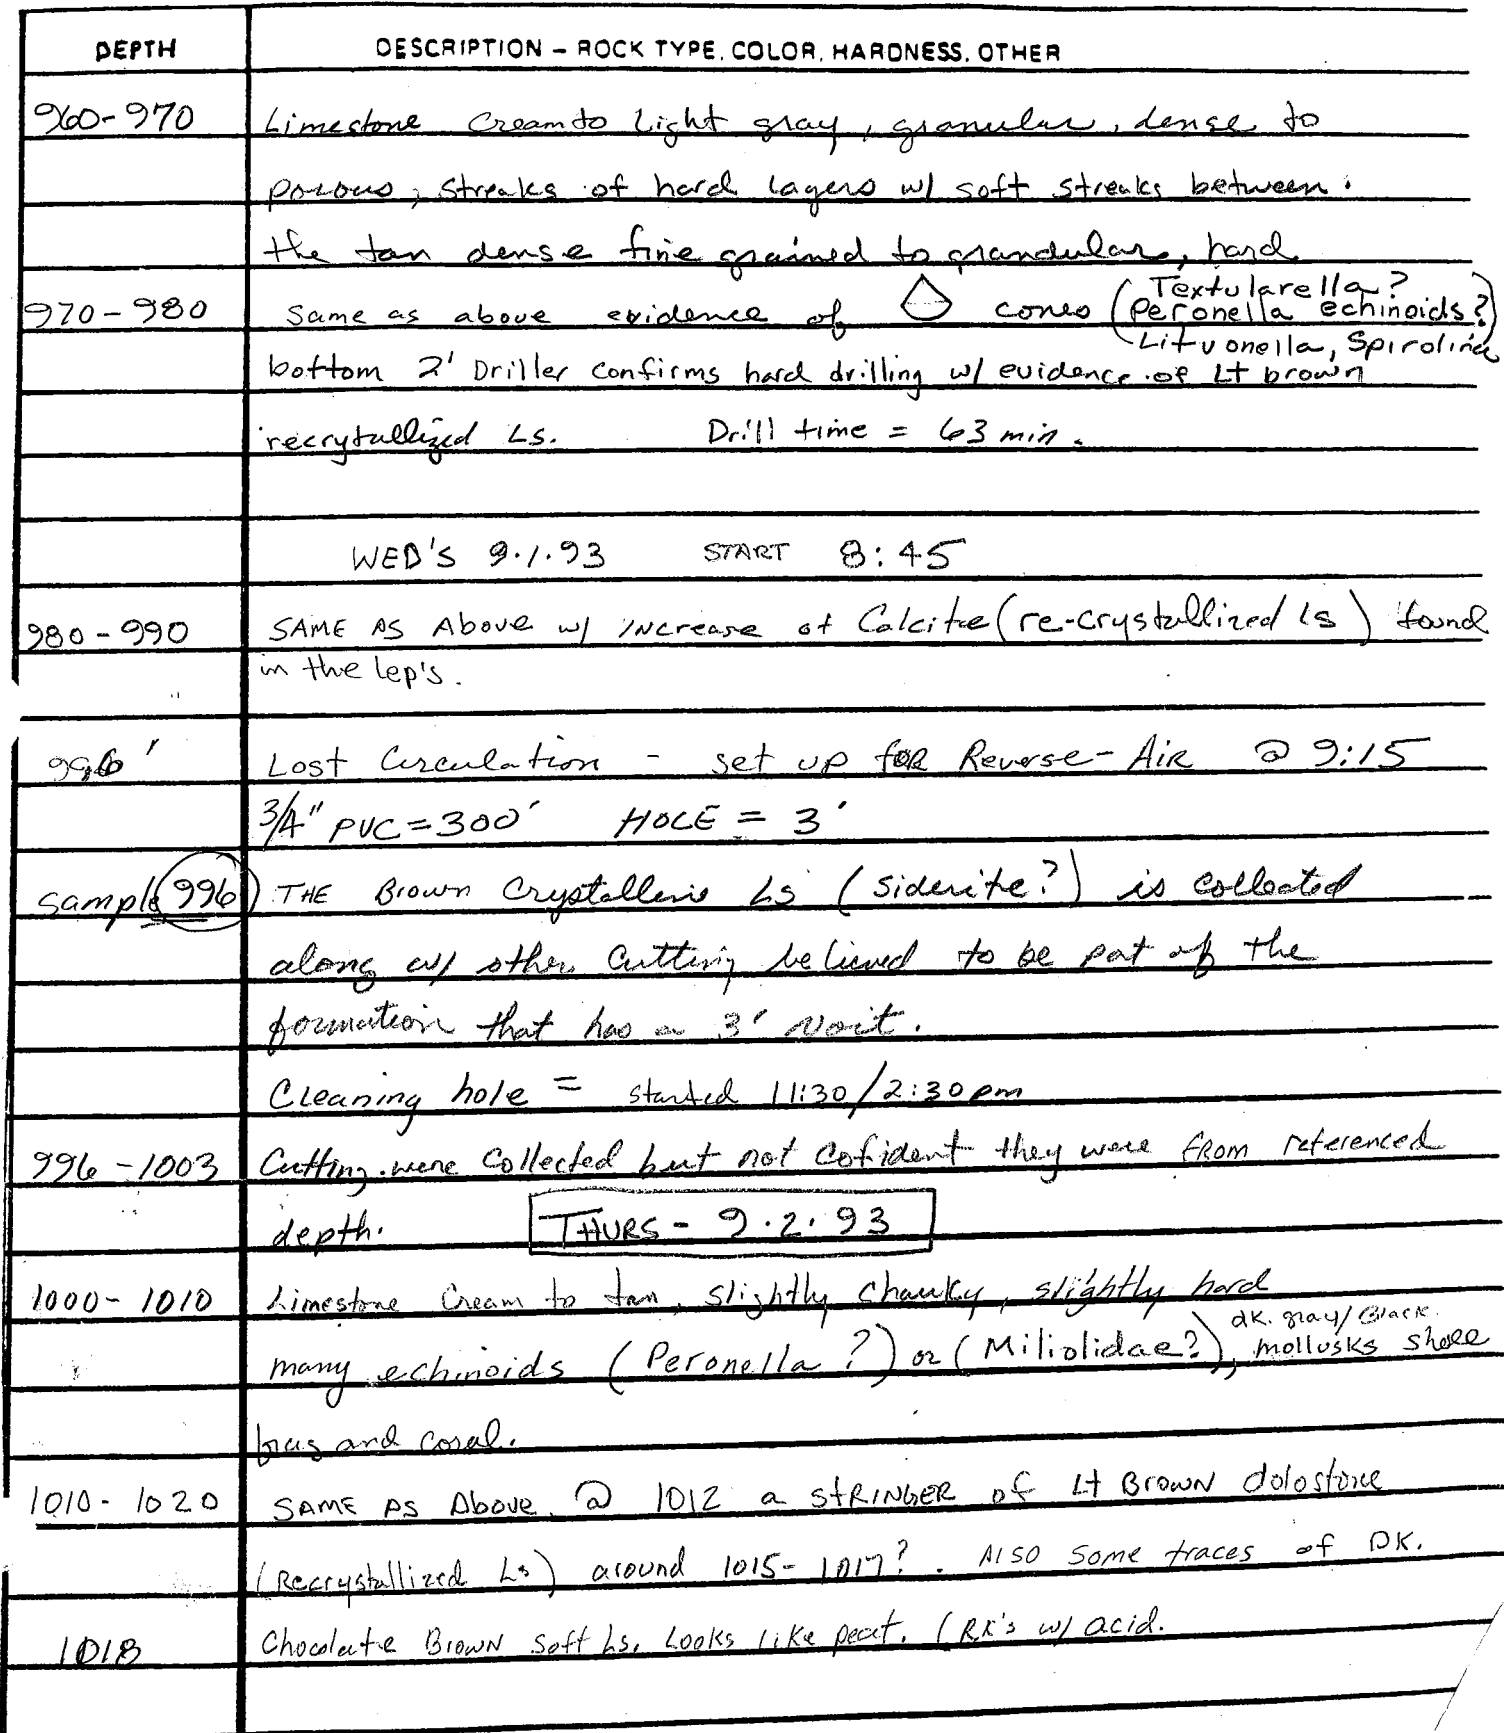 DEPTH DESCRIPTION – ROCK TYPE, COLOR, HARDNESS, OTHER
960-970 Limestone Cream to Light gray, granular, dense to
porous, streaks of hard layers w/ soft streaks between.
the tan dense fine grained to grandular, hard
970-980 same as above evidence of cones (Textularella?
Peronella echinoids?)
Lituonella, Spirolina
bottom 2' Driller confirms hard drilling w/ evidence of Lt brown
recrytallized Ls. Drill time = 63 min.
WED'S 9.1.93 START 8:45
980-990 SAME AS Above w/ increase of Calcite (re-crystallized Ls) found
in the lep's.
996' Lost Circulation - set up for Reverse-Air @ 9:15
3/4" PVC=300' HOLE = 3'
sample 996 THE Brown Crystalline Ls (siderite?) is collected
along w/ other Cutting believed to be pat of the
formation that has a 3' voit.
Cleaning hole = started 11:30/2:30pm
996-1003 Cutting were collected but not cofident they were from referenced
depth. THURS - 9.2.93
1000-1010 Limestone Cream to tan, slightly chauky, slightly hard
many echinoids (Peronella?) or (Miliolidae?), dk. gray/Black mollusks shell
frag and coral.
1010-1020 SAME AS Above @ 1012 a STRINGER of Lt Brown dolostone
(Recrystallized Ls) around 1015-1017? . Also some traces of DK.
1018 Chocolate Brown soft Ls. Looks like peat. (RX's w/ acid.